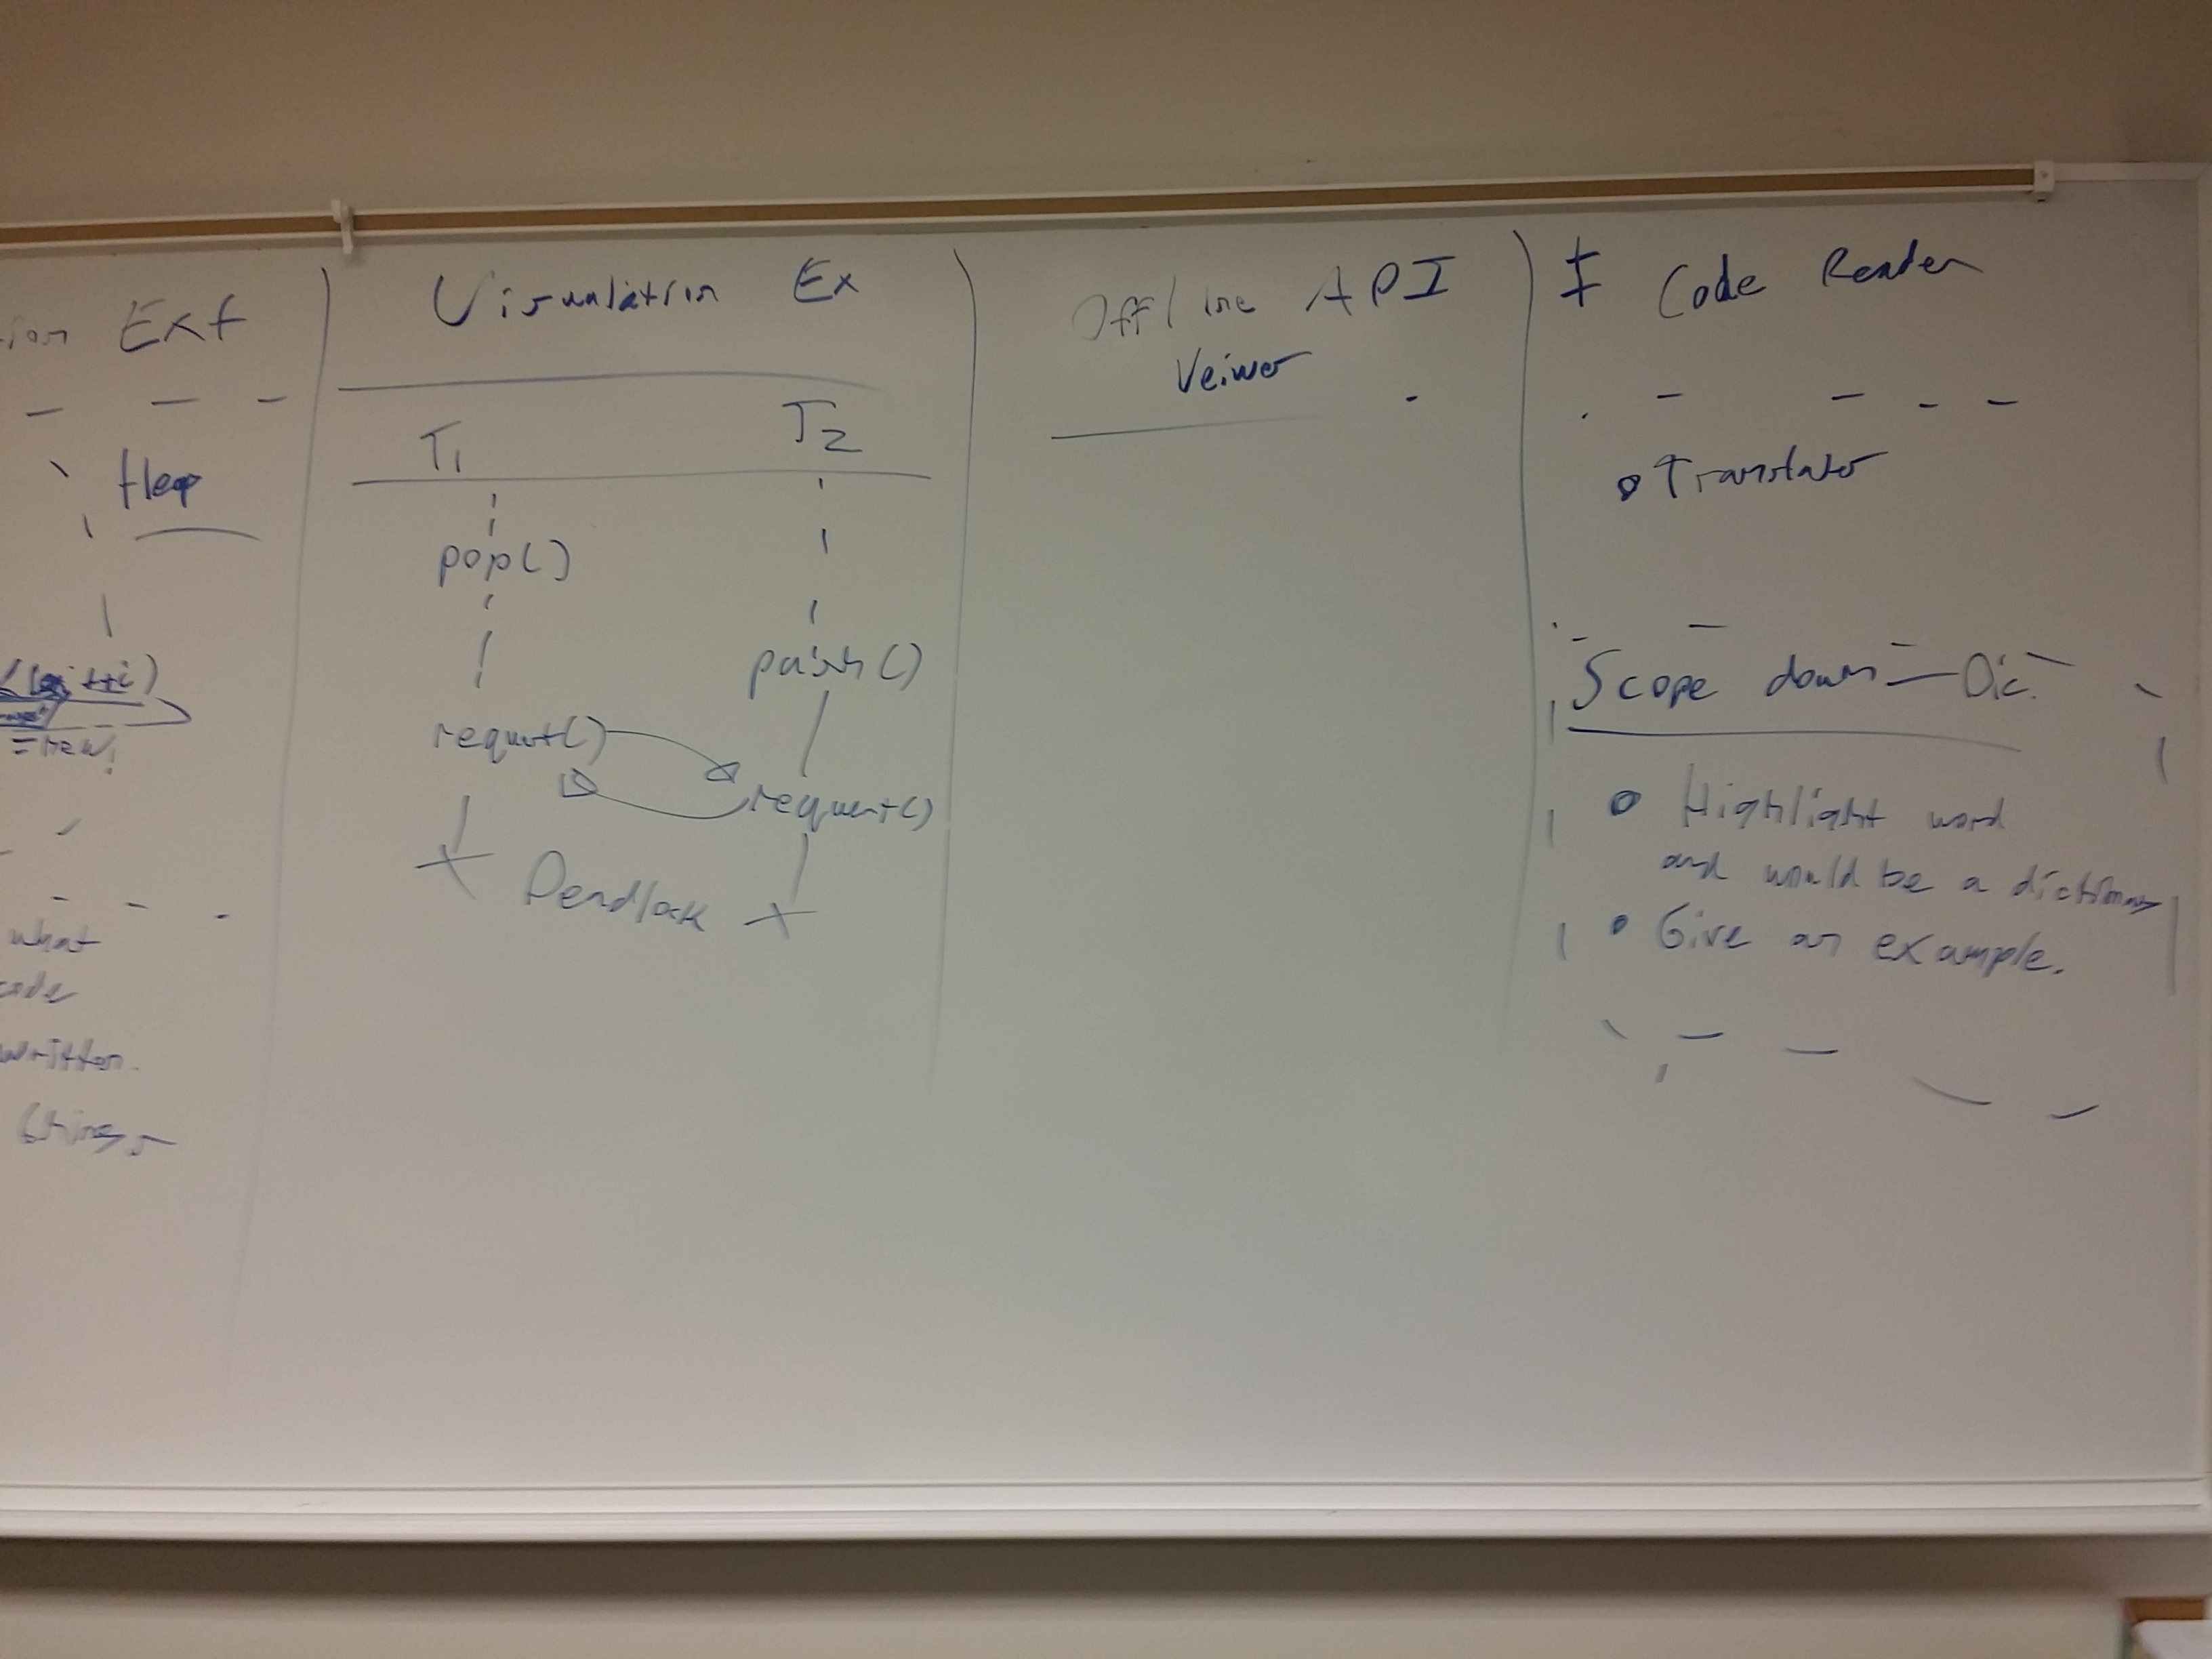 Ext
Heap
= new
what
code
written.
Visulation Ex
T1 T2
pop()
push()
request()
request()
Deadlock
Offline API
Veiwer
Code Reader
Translator
Scope down - Dic.
Highlight word
and would be a dictionary
Give an example.